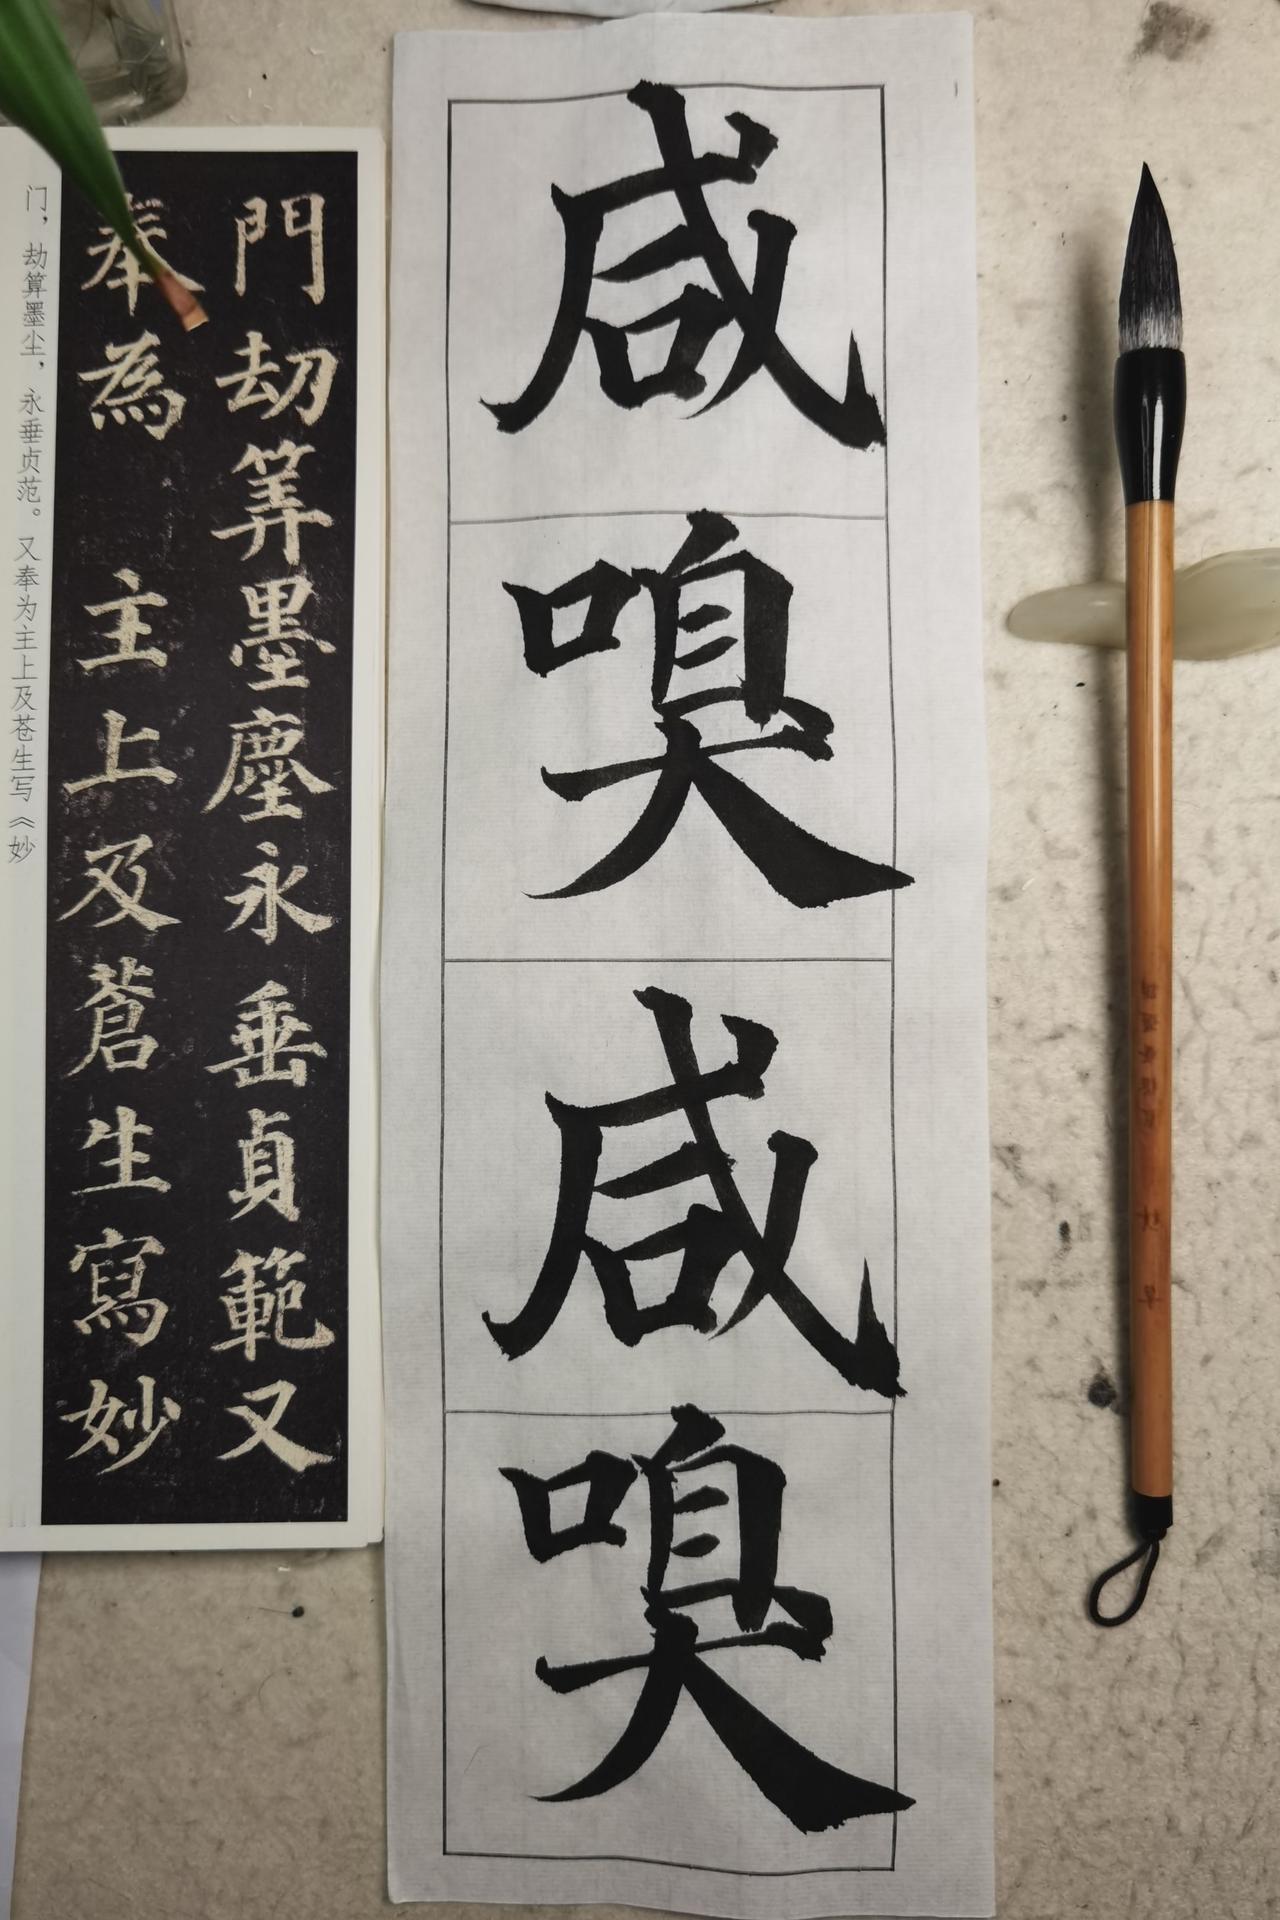 咸嗅咸嗅
門劫筭墨塵永垂貞範又
奉為主上及蒼生寫妙
门，劫算墨尘，永垂贞范。又奉为主上及苍生写《妙